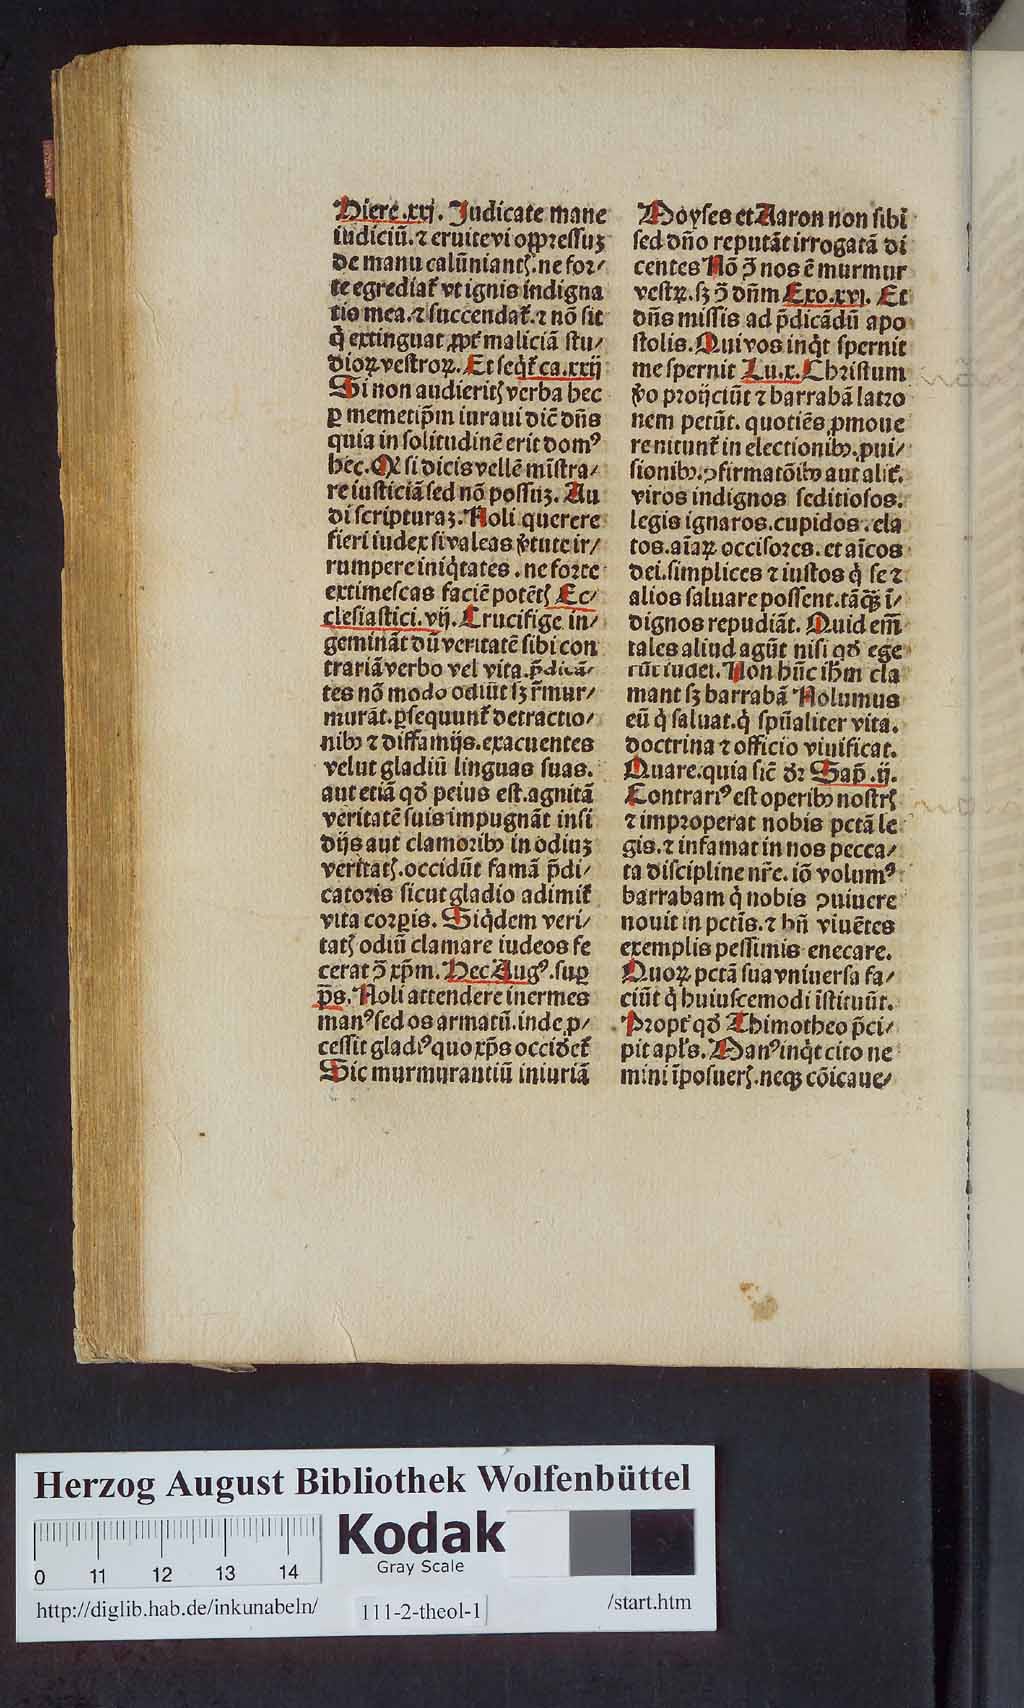 Hiere .xxj. Judicate mane
iudiciū. ⁊ eruite vi oppressuꝫ
de manu calūniantꝭ. ne for/
te egrediat᷑ vt ignis indigna
tio mea. ⁊ succendat᷑. ⁊ nō sit
q̇ extinguat ꝓpt᷑ maliciā stu/
dioꝝ vestroꝝ. Et seq̄t᷑ ca. xxij
Si non audieritꝭ verba hec
ꝑ memetip̄m iuraui dic̄ dn̄s
quia in solitudinē erit domꝰ
hec. Qꝛ si dicis vellē mīstra/
re iusticiā sed nō possuꝫ. Au
di scripturaꝫ. Noli querere
fieri iudex si valeas v̓tute ir/
rumpere iniq̇tates. ne forte
extimescas faciē potētꝭ Ec/
clesiastici. vij. Crucifige in/
gemināt dū veritatē sibi con
trariā verbo vel vita. p̄dicā/
tes nō modo odiūt sꝫ r̄mur/
murāt. ꝑsequunt᷑ detractio/
nibꝰ ⁊ diffamijs. exacuentes
velut gladiū linguas suas.
aut etiā qd̓ peius est. agnitā
veritatē suis impugnāt insi
dijs aut clamoribꝰ in odiuꝫ
veritatꝭ. occidūt famā p̄di/
catoris sicut gladio adimit᷑
vita corꝑis. Siq̇dem veri/
tatꝭ odiū clamare iudeos fe
cerat ꝯ̄ xp̄m. Hec Augꝰ. suꝑ
p̄s. Noli attendere inermes
manꝰ sed os armatū. inde ꝓ/
cessit gladiꝰ quo xp̄s occidet᷑
Sic murmurantiū iniuriā
Moyses et Aaron non sibi
sed dn̄o reputāt irrogatā di
centes Nō ꝯ̄ nos ē murmur
vestrꝝ. sꝫ ꝯ̄ dn̄m Exo. xvj. Et
dn̄s missis ad p̄dicādū apo
stolis. Qui vos inq̇t spernit
me spernit Lu. x. Christum
v̓o proijciūt ⁊ barrabā latro
nem petūt. quotiēs ꝓmoue
re nitunt᷑ in electionibꝰ. ꝓui/
sionibꝰ. ꝯfirmatōibꝰ aut alit᷑.
viros indignos seditiosos.
legis ignaros. cupidos. ela
tos. aīaꝝ occisores. et aīcos
dei. simplices ⁊ iustos q̇ se ⁊
alios saluare possent. tāqꝫ̄ ī/
dignos repudiāt. Quid em̄
tales aliud agūt nisi qd̓ ege
rūt iudei. Non hūc ih̄m cla
mant sꝫ barrabā Nolumus
eū q̇ saluat. q̇ spūaliter vita.
doctrina ⁊ officio viuificat.
Quare. quia sic̄ dr̄ Sap̄. ij.
Contrariꝰ est operibꝰ nostrꝭ
⁊ improperat nobis pctā le
gis. ⁊ infamat in nos pecca/
ta discipline nr̄e. iō volumꝰ
barrabam q̇ nobis ꝯuiuere
nouit in pctīs. ⁊ bn̄ viuētes
exemplis pessimis enecare.
Quoꝝ pctā sua vniuersa fa/
ciūt q̇ huiuscemodi īstituūt.
Propt᷑ qd̓ Thimotheo p̄ci/
pit apl̄s. Manꝰ inq̇t cito ne
mini īposuerꝭ. neqꝫ cōicaue/
Herzog August Bibliothek Wolfenbüttel
Kodak
Gray Scale
0 11 12 13 14
http://diglib.hab.de/inkunabeln/ 111-2-theol-1 /start.htm